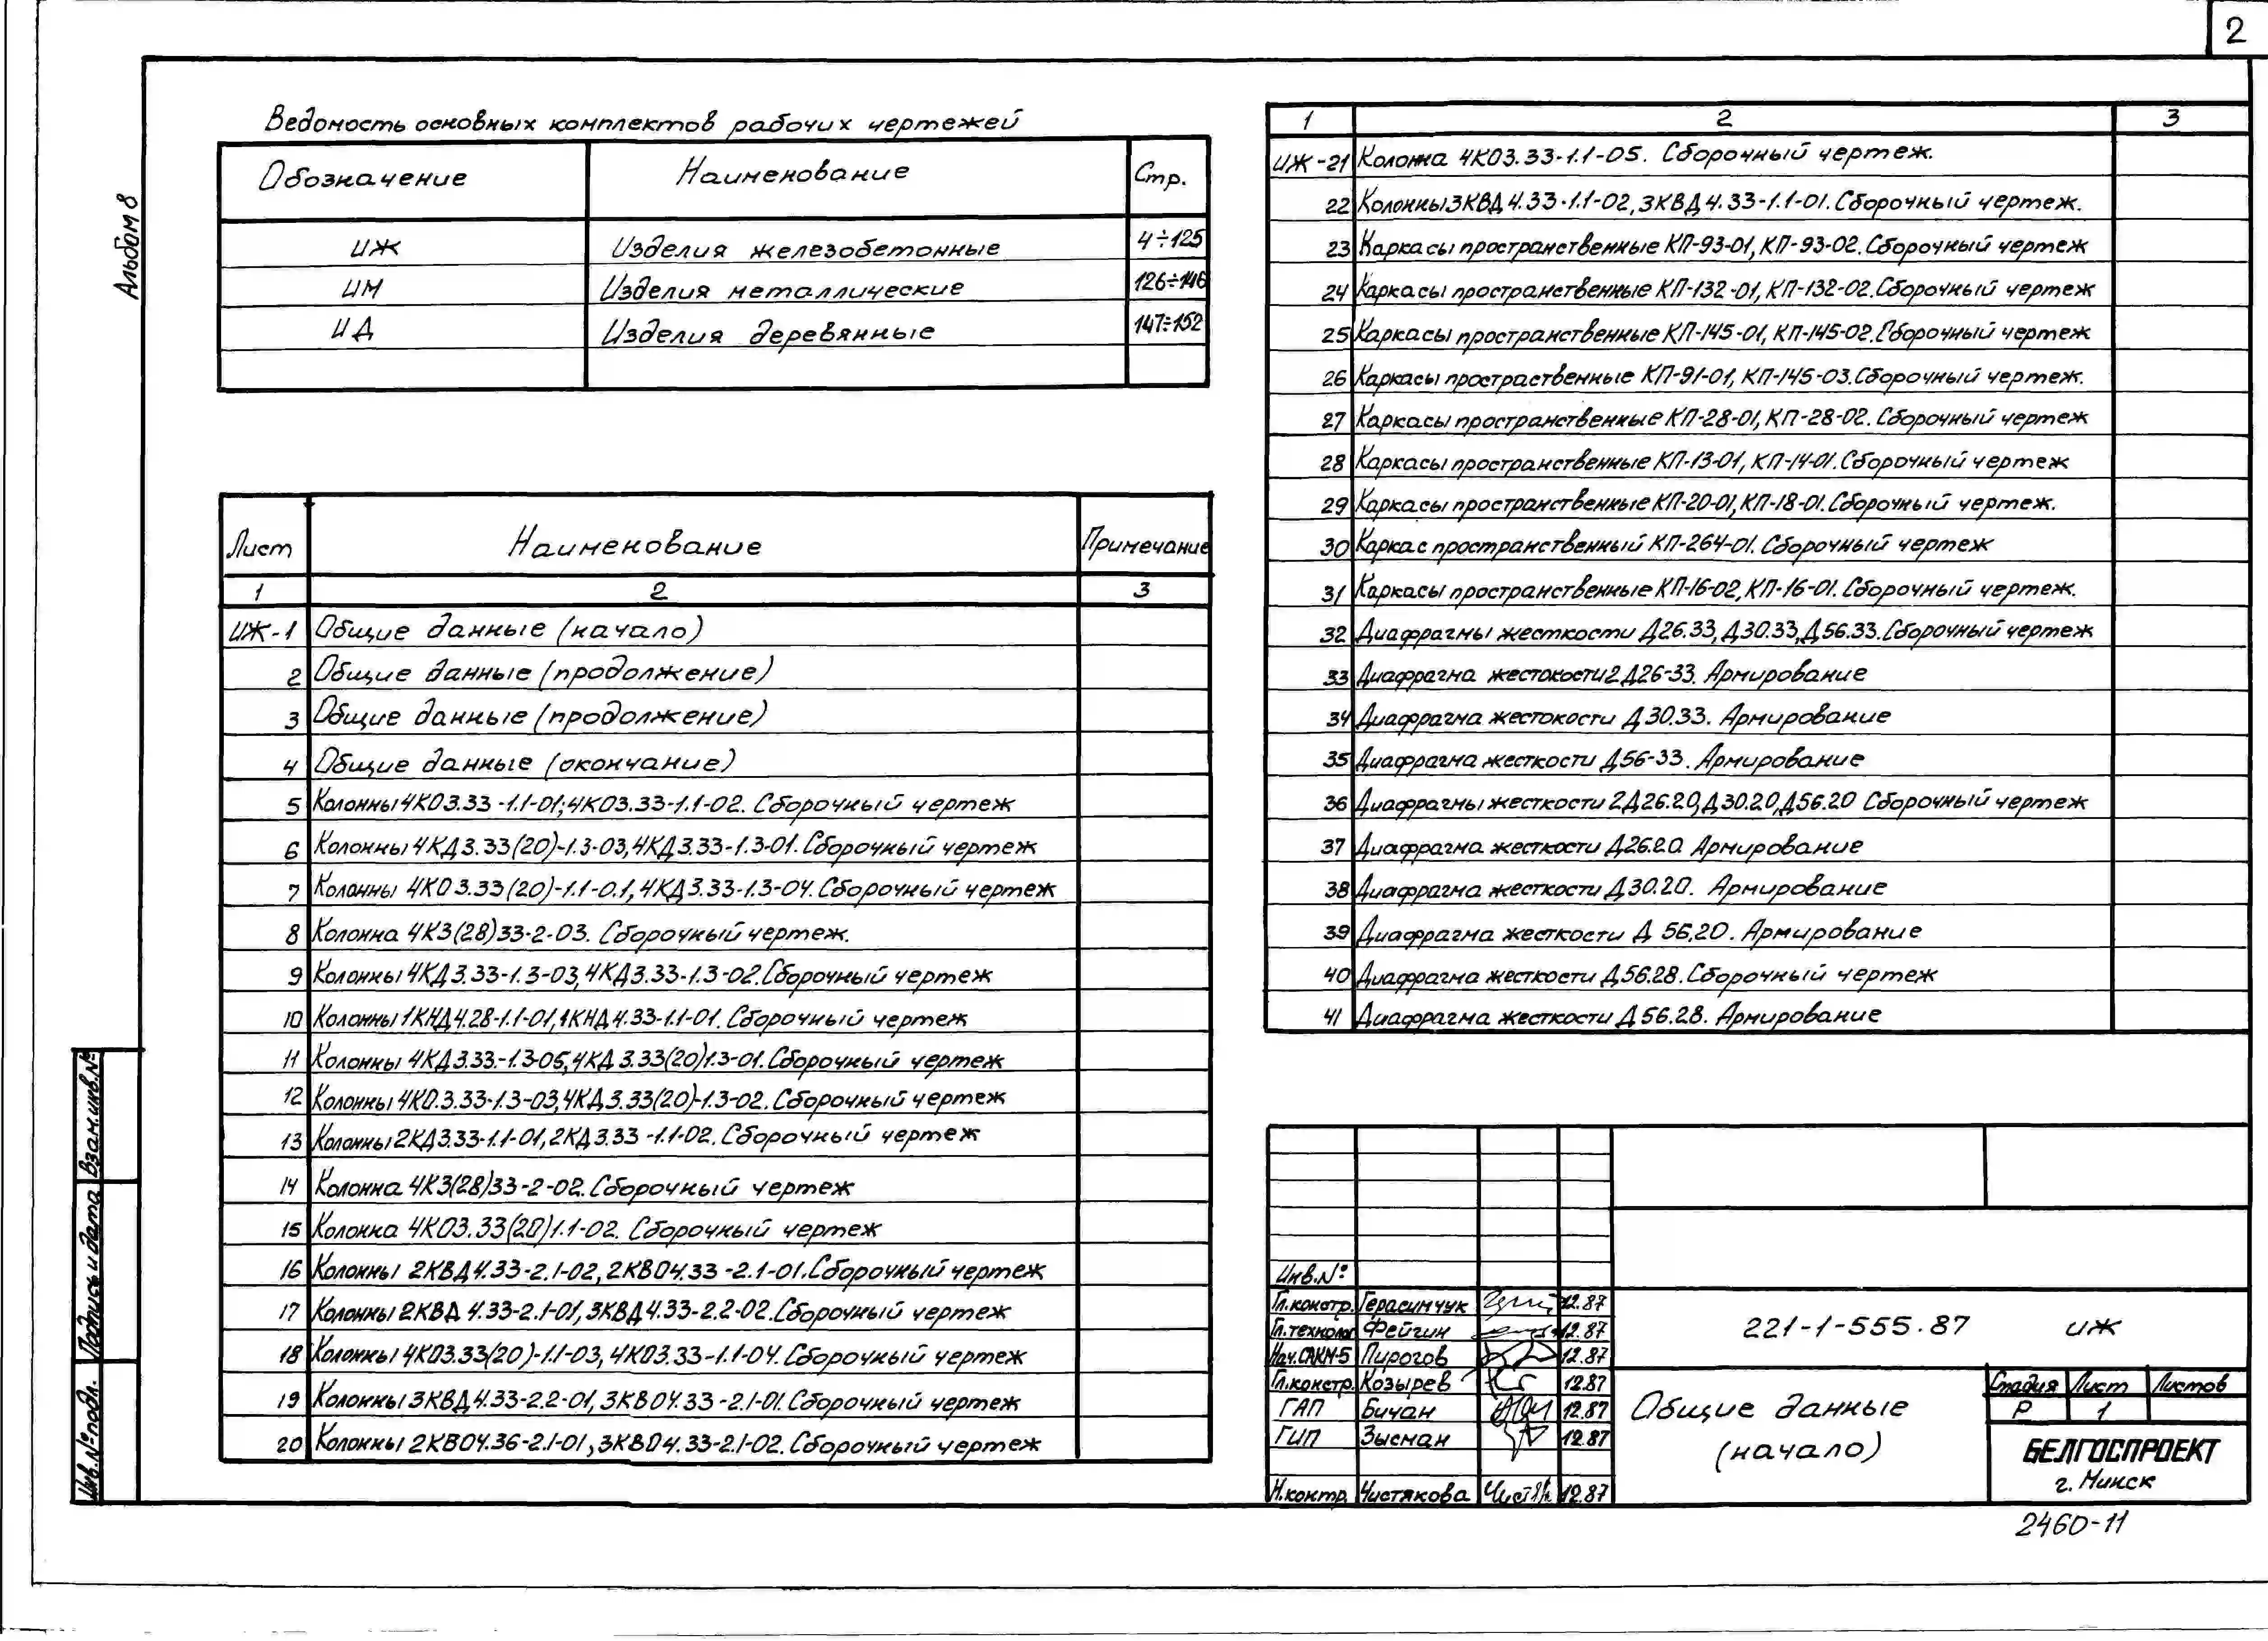 2
Альбом 8
Ведомость основных комплектов рабочих чертежей
Обозначение Наименование Стр.
ИЖ Изделия железобетонные 4÷125
ИМ Изделия металлические 126÷146
ИД Изделия деревянные 147÷152
Лист Наименование Примечание
1 2 3
ИЖ-1 Общие данные (начало)
2 Общие данные (продолжение)
3 Общие данные (продолжение)
4 Общие данные (окончание)
5 Колонны 4КО3.33-1.1-01; 4КО3.33-1.1-02. Сборочный чертеж
6 Колонны 4КД3.33(20)-1.3-03, 4КД3.33-1.3-01. Сборочный чертеж
7 Колонны 4КО3.33(20)-1.1-0.1, 4КД3.33-1.3-04. Сборочный чертеж
8 Колонна 4К3(28)33-2-03. Сборочный чертеж.
9 Колонны 4КД3.33-1.3-03, 4КД3.33-1.3-02. Сборочный чертеж
10 Колонны 1КНД4.28-1.1-01, 1КНД4.33-1.1-01. Сборочный чертеж
11 Колонны 4КД3.33-1.3-05, 4КД3.33(20)1.3-01. Сборочный чертеж
12 Колонны 4КО.3.33-1.3-03, 4КД3.33(20)-1.3-02. Сборочный чертеж
13 Колонны 2КД3.33-1.1-01, 2КД3.33-1.1-02. Сборочный чертеж
14 Колонна 4К3(28)33-2-02. Сборочный чертеж
15 Колонна 4КО3.33(20)1.1-02. Сборочный чертеж
16 Колонны 2КВД4.33-2.1-02, 2КВО4.33-2.1-01. Сборочный чертеж
17 Колонны 2КВД 4.33-2.1-01, 3КВД4.33-2.2-02. Сборочный чертеж
18 Колонны 4КО3.33(20)-1.1-03, 4КО3.33-1.1-04. Сборочный чертеж
19 Колонны 3КВД4.33-2.2-01, 3КВО4.33-2.1-01. Сборочный чертеж
20 Колонны 2КВО4.36-2.1-01, 3КВО4.33-2.1-02. Сборочный чертеж
1 2 3
ИЖ-21 Колонна 4КО3.33-1.1-05. Сборочный чертеж.
22 Колонны 3КВД4.33-1.1-02, 3КВД4.33-1.1-01. Сборочный чертеж.
23 Каркасы пространственные КП-93-01, КП-93-02. Сборочный чертеж
24 Каркасы пространственные КП-132-01, КП-132-02. Сборочный чертеж
25 Каркасы пространственные КП-145-01, КП-145-02. Сборочный чертеж
26 Каркасы простраственные КП-91-01, КП-145-03. Сборочный чертеж.
27 Каркасы пространственные КП-28-01, КП-28-02. Сборочный чертеж
28 Каркасы пространственные КП-13-01, КП-14-01. Сборочный чертеж
29 Каркасы пространственные КП-20-01, КП-18-01. Сборочный чертеж.
30 Каркас пространственный КП-264-01. Сборочный чертеж
31 Каркасы пространственные КП-16-02, КП-16-01. Сборочный чертеж.
32 Диафрагмы жесткости Д26.33, Д30.33, Д56.33. Сборочный чертеж
33 Диафрагма жестокости 2Д26-33. Армирование
34 Диафрагма жестокости Д30.33. Армирование
35 Диафрагма жесткости Д56-33. Армирование
36 Диафрагмы жесткости 2Д26.20, Д30.20, Д56.20 Сборочный чертеж
37 Диафрагма жесткости Д26.20. Армирование
38 Диафрагма жесткости Д30.20. Армирование
39 Диафрагма жесткости Д 56.20. Армирование
40 Диафрагма жесткости Д56.28. Сборочный чертеж
41 Диафрагма жесткости Д56.28. Армирование
Взам.инв.№
Подпись и дата
Инв.№подл.
Инв.№
Гл.констр. Герасимчук 12.87
Гл.технолог Фейгин 12.87
Нач.САКМ-5 Пирогов 12.87
Гл.констр. Козырев 12.87
ГАП Бичан 12.87
ГИП Зысман 12.87
Н.контр. Чистякова 12.87
221-1-555.87 ИЖ
Общие данные
(начало)
Стадия Лист Листов
Р 1
БЕЛГОСПРОЕКТ
г. Минск
2460-11